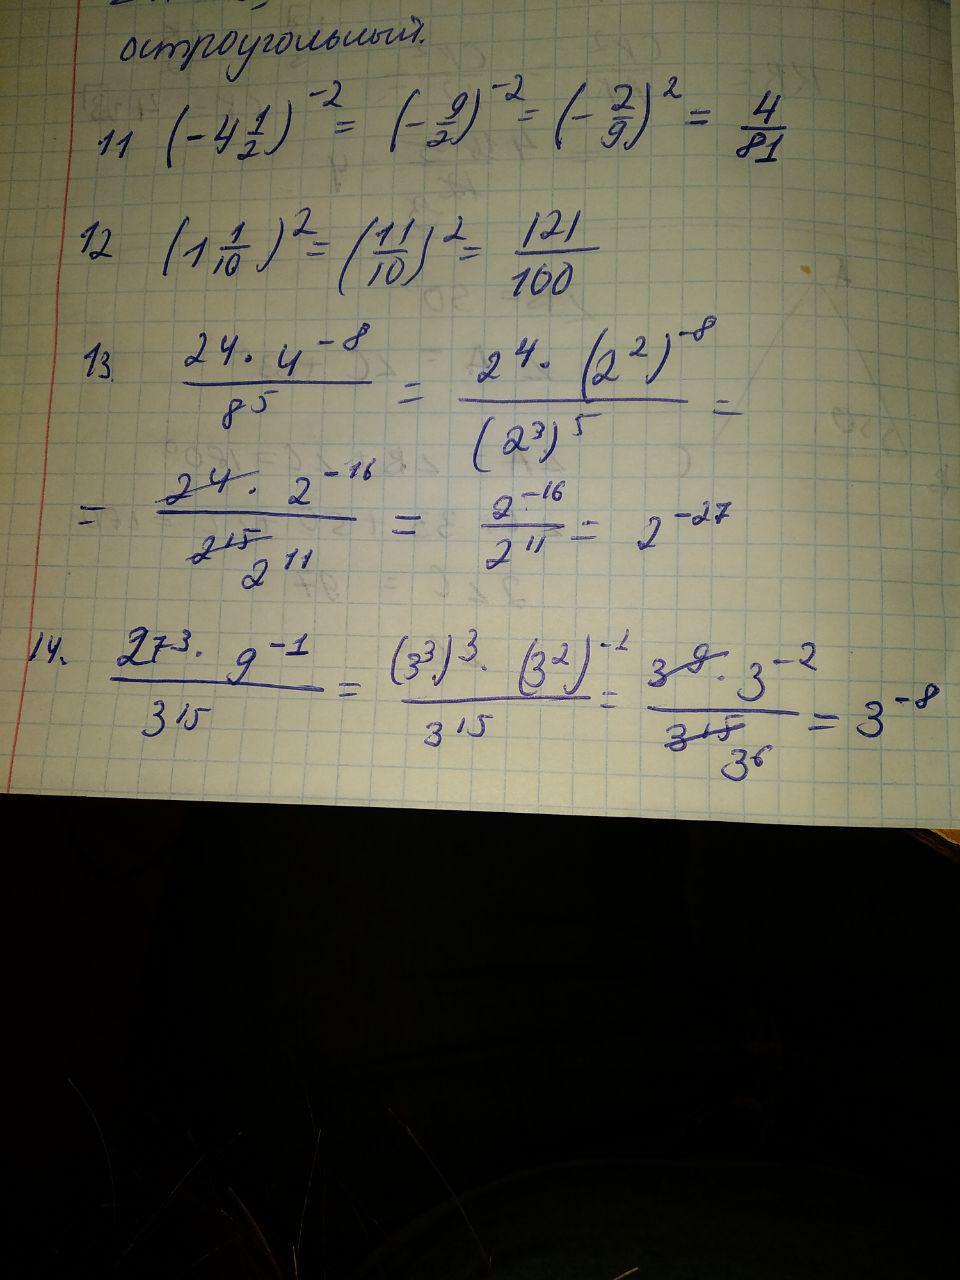 остроугольный.
11 (-4 1/2)^-2 = (-9/2)^-2 = (-2/9)^2 = 4/81
12 (1 1/10)^2 = (11/10)^2 = 121/100
13. 2^4 · 4^-8 / 8^5 = 2^4 · (2^2)^-8 / (2^3)^5 =
= 2^4 · 2^-16 / 2^15 2^11 = 2^-16 / 2^11 = 2^-27
14. 27^3 · 9^-1 / 3^15 = (3^3)^3 · (3^2)^-1 / 3^15 = 3^9 · 3^-2 / 3^15 3^6 = 3^-8